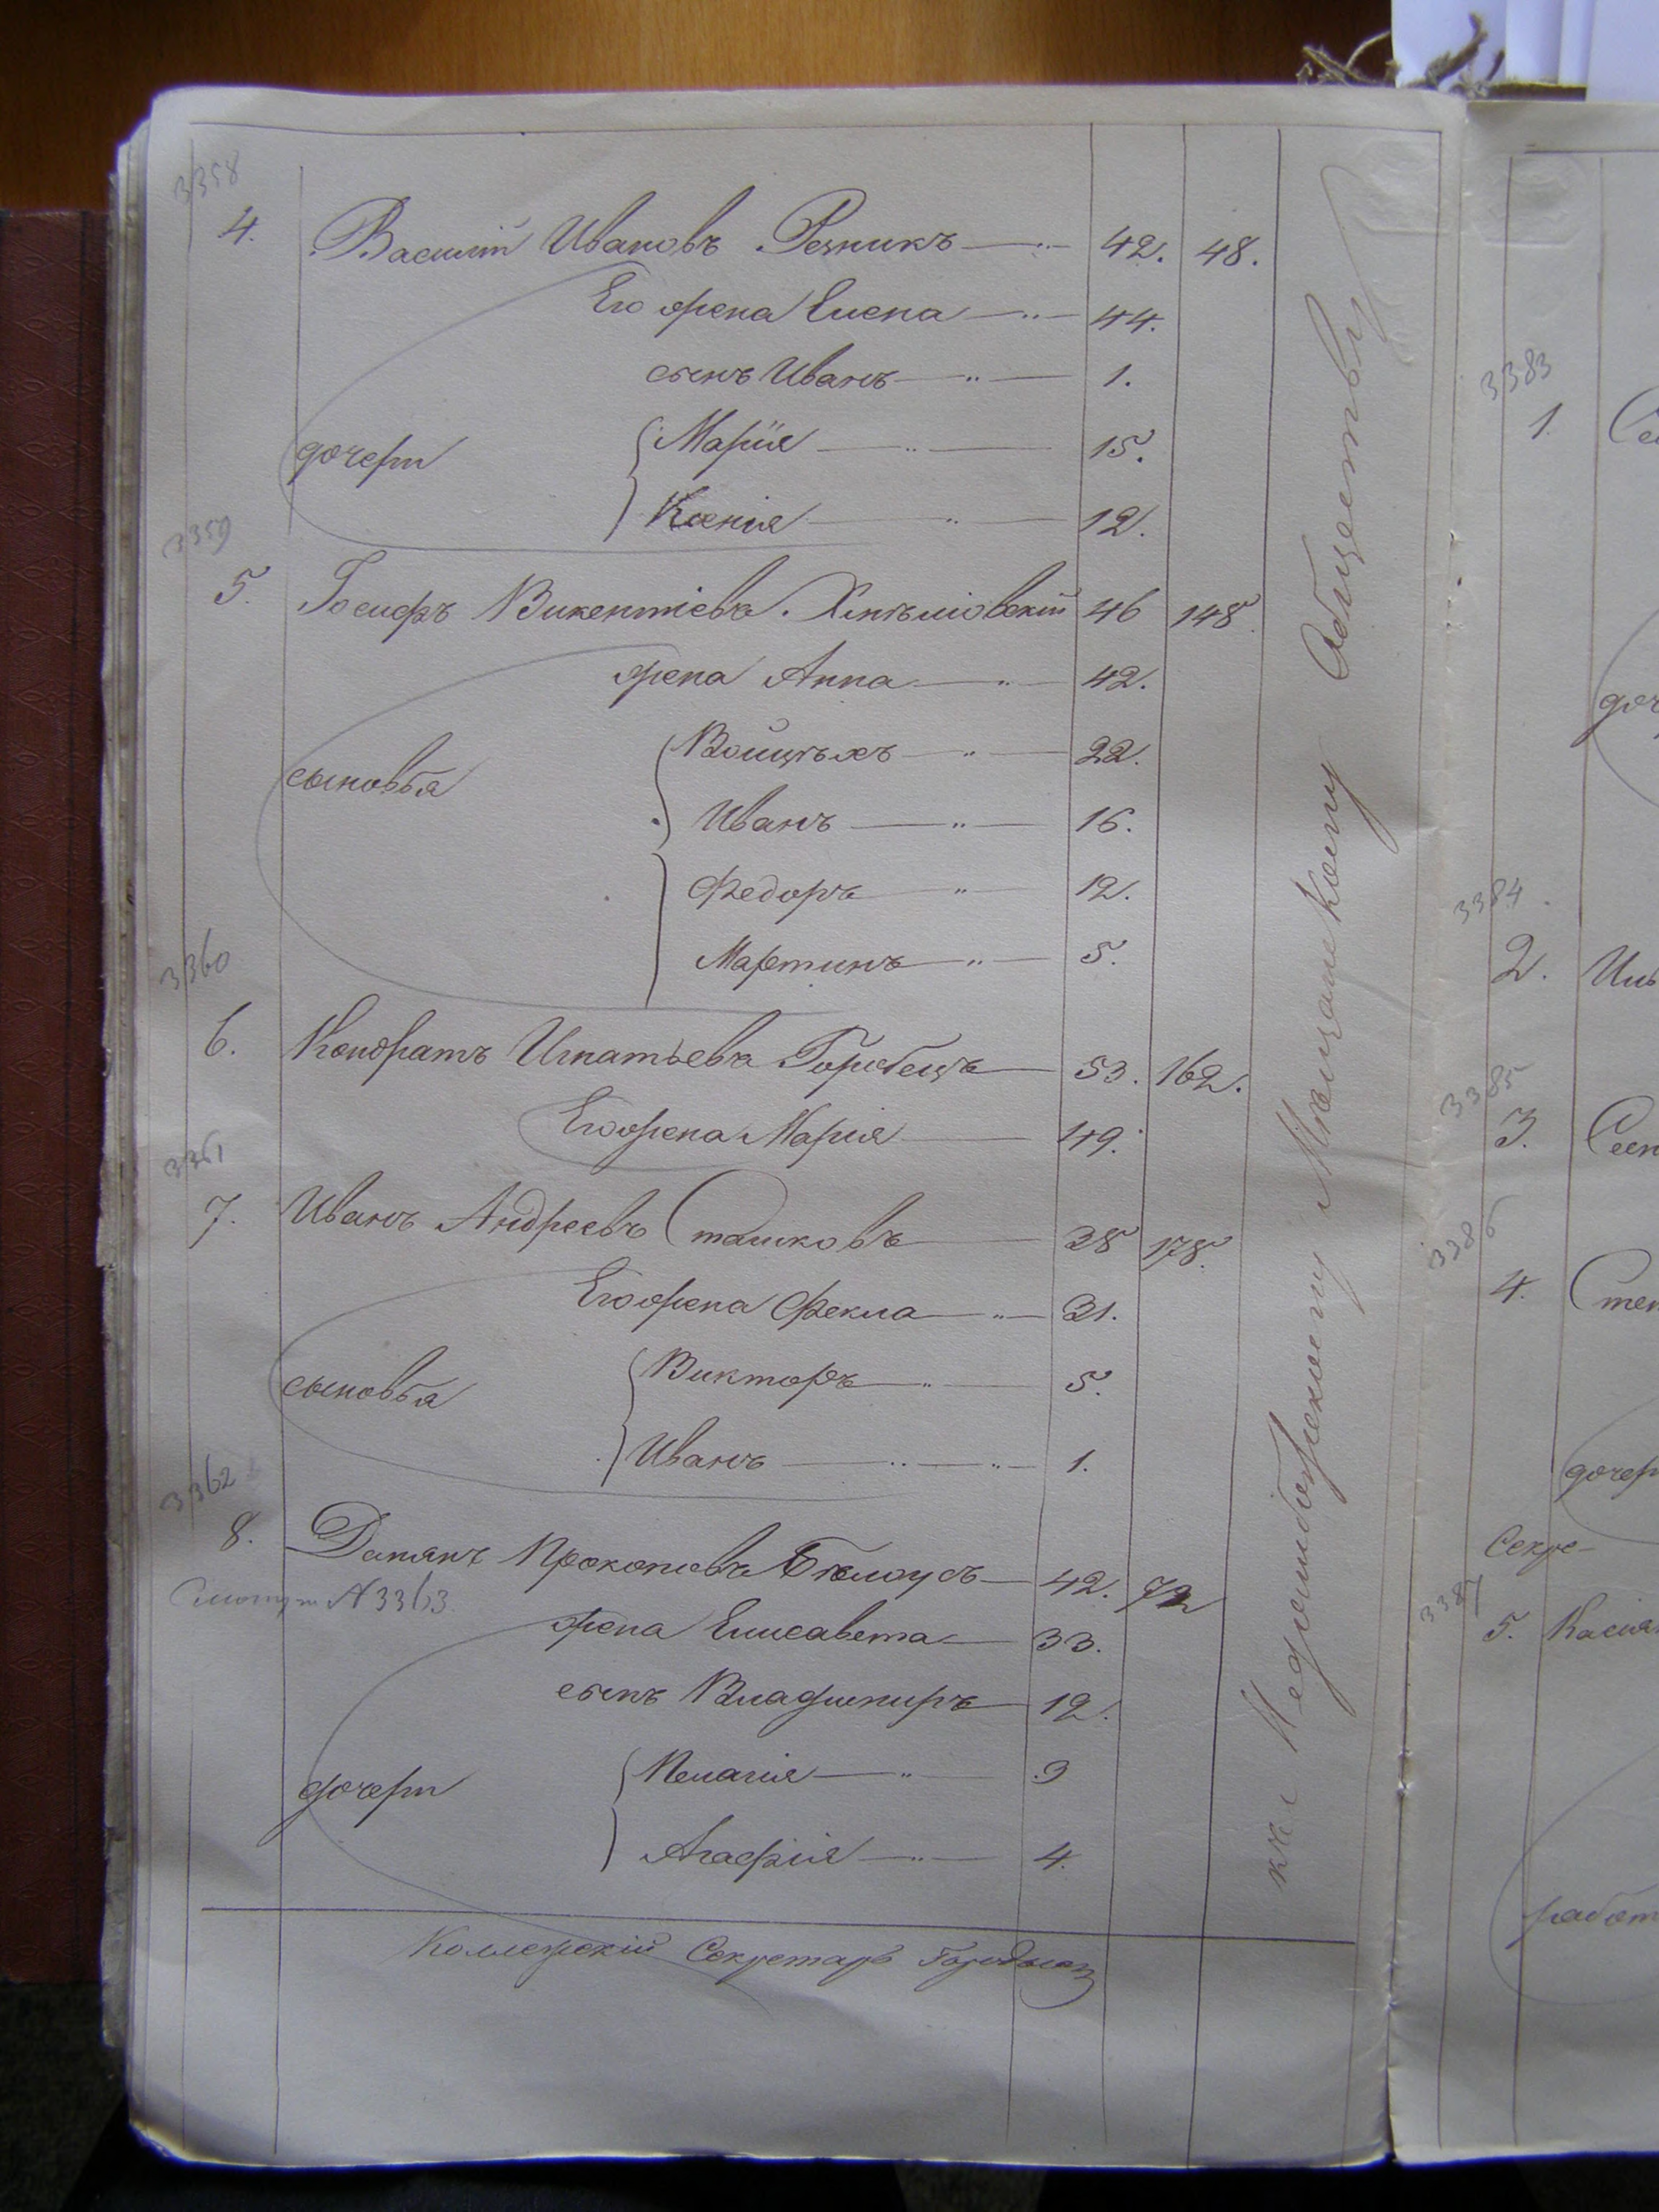 3358
4. Василій Ивановъ Резникъ 42. 48.
Его жена Елена 44.
сынъ Иванъ 1.
дочери Марія 15.
Ксенія 12.
3359
5. Іосифъ Викентіевъ Хмѣлювскій 46 148.
жена Анна 42.
сыновья Войцѣхъ 22.
Иванъ 16.
Федоръ 12.
Мартинъ 5.
3360
6. Кондратъ Игнатьевъ Горобецъ 53. 162.
Его жена Марія 49.
3361
7. Иванъ Андреевъ Сташковъ 38 178.
Его жена Фекла 31.
сыновья Викторъ 5.
Иванъ 1.
3362
8. Дамянъ Прокопіевъ Бѣлоусъ 42. 72
Смотри N 3363.
жена Елисавета 33.
сынъ Владимиръ 12.
дочери Пелагія 9
Агафія 4.
Коллежскій Секретарь
къ Меджибожскому Мѣщанскому Обществу
3383
1.
3384
2.
3385
3.
3386
4.
Секре-
3387
5.